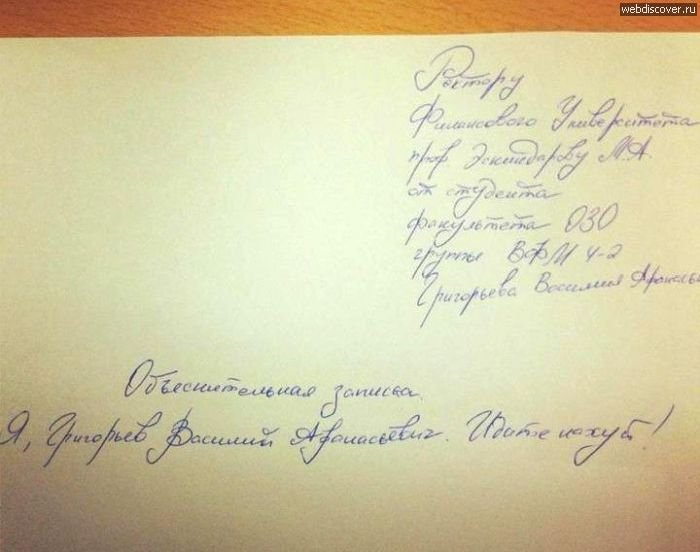 webdiscover.ru
Ректору
Финансового Университета
проф Эскиндарову М.А.
от студента
факультета ОЗО
группы ВФМ 4-2
Григорьева Василия Афанасье
Объяснительная записка.
Я, Григорьев Василий Афанасьевич. Идите нахуй!